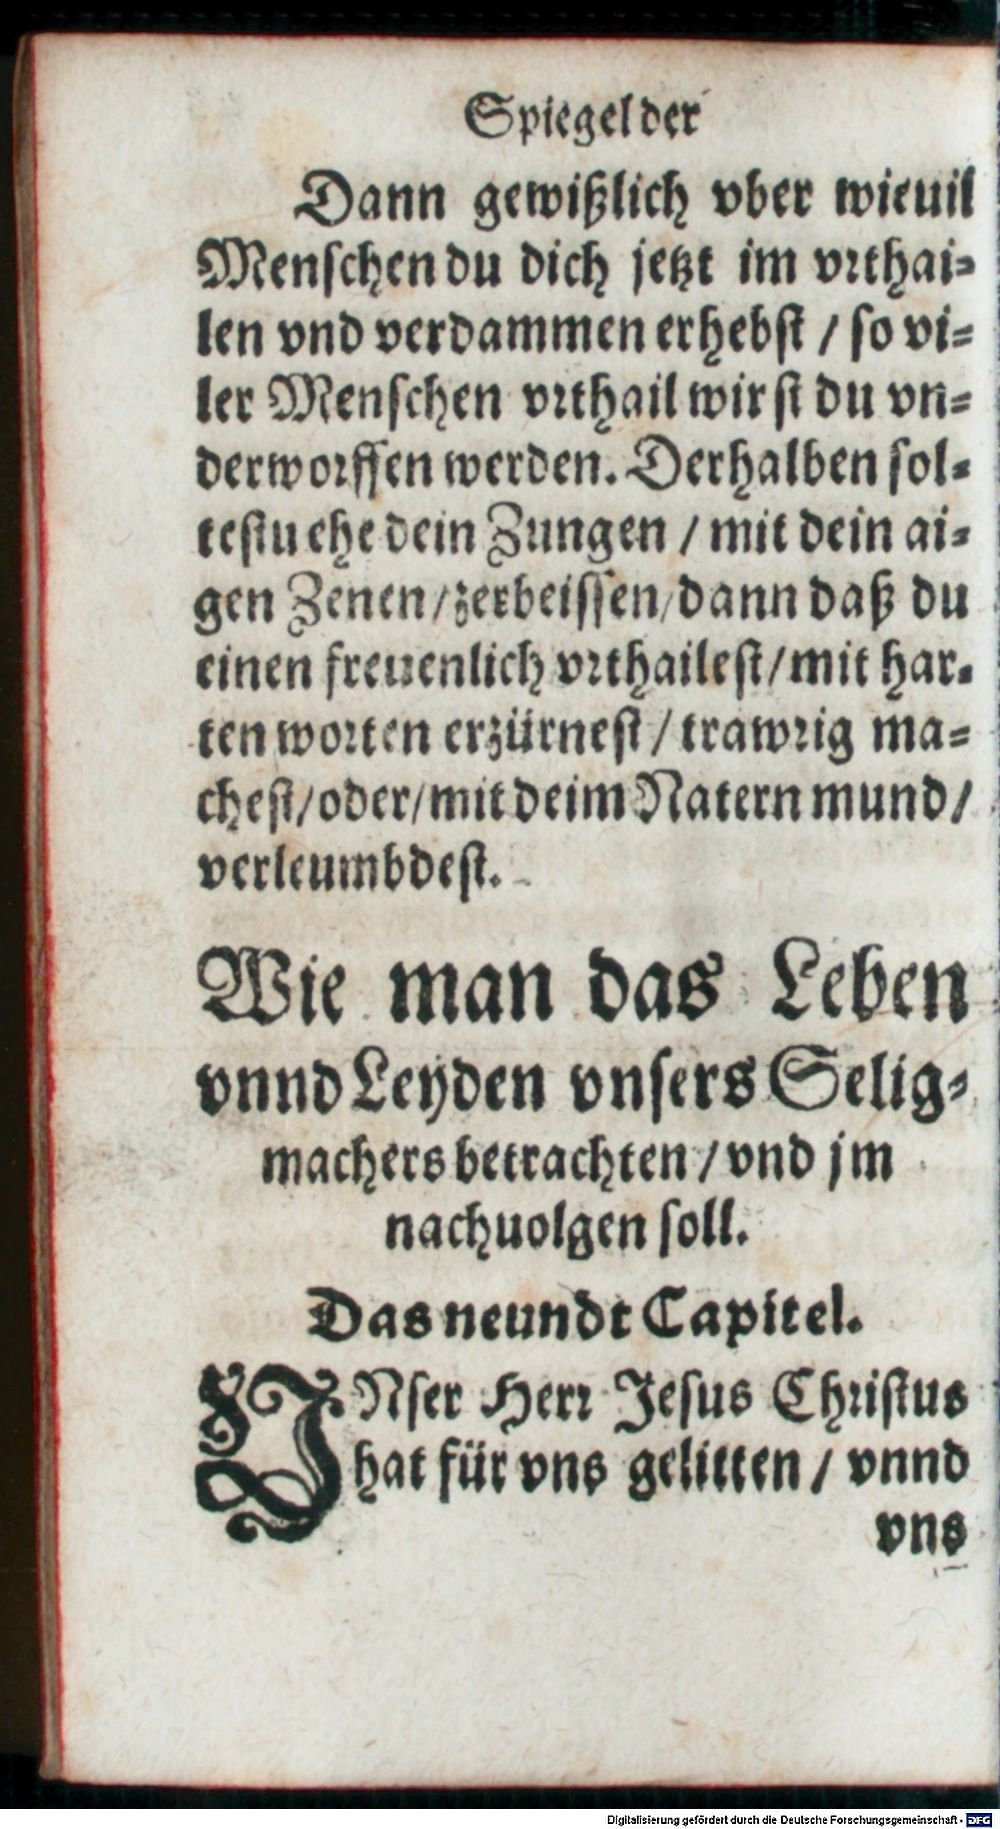 Spiegel der
Dann gewißlich vber wieuil
Menschen du dich jetzt im vrthai-
len vnd verdammen erhebst / so vi-
ler Menschen vrthail wirst du vn-
derworffen werden. Derhalben sol-
testu ehe dein Zungen / mit dein ai-
gen Zenen / zerbeissen / dann daß du
einen freuenlich vrthailest / mit har-
ten worten erzürnest / trawrig ma-
chest / oder / mit deim Natern mund /
verleumbdest.
Wie man das Leben
vnnd Leyden vnsers Selig-
machers betrachten / vnd jm
nachuolgen soll.
Das neundt Capitel.
VNser Herr Jesus Christus
hat für vns gelitten / vnnd
vns
Digitalisierung gefördert durch die Deutsche Forschungsgemeinschaft - DFG